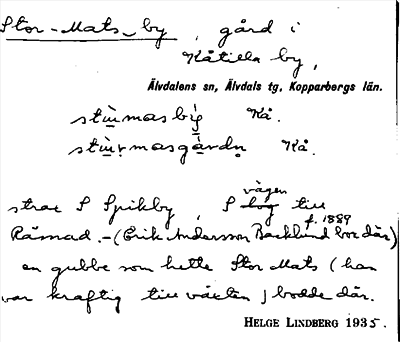 Stor-Mats-by, gård i
Kåtilla by,
Älvdalens sn, Älvdals tg, Kopparbergs län.
stùrmasbỳ Kå.
stùrmasgàrdn Kå.
vägen
strax S Spikby, S till
f. 1889
Råsnad. - (Erik Andersson Backlund bor där)
en gubbe som hette Stor Mats (han
var kraftig till växten) bodde där.
HELGE LINDBERG 1935.